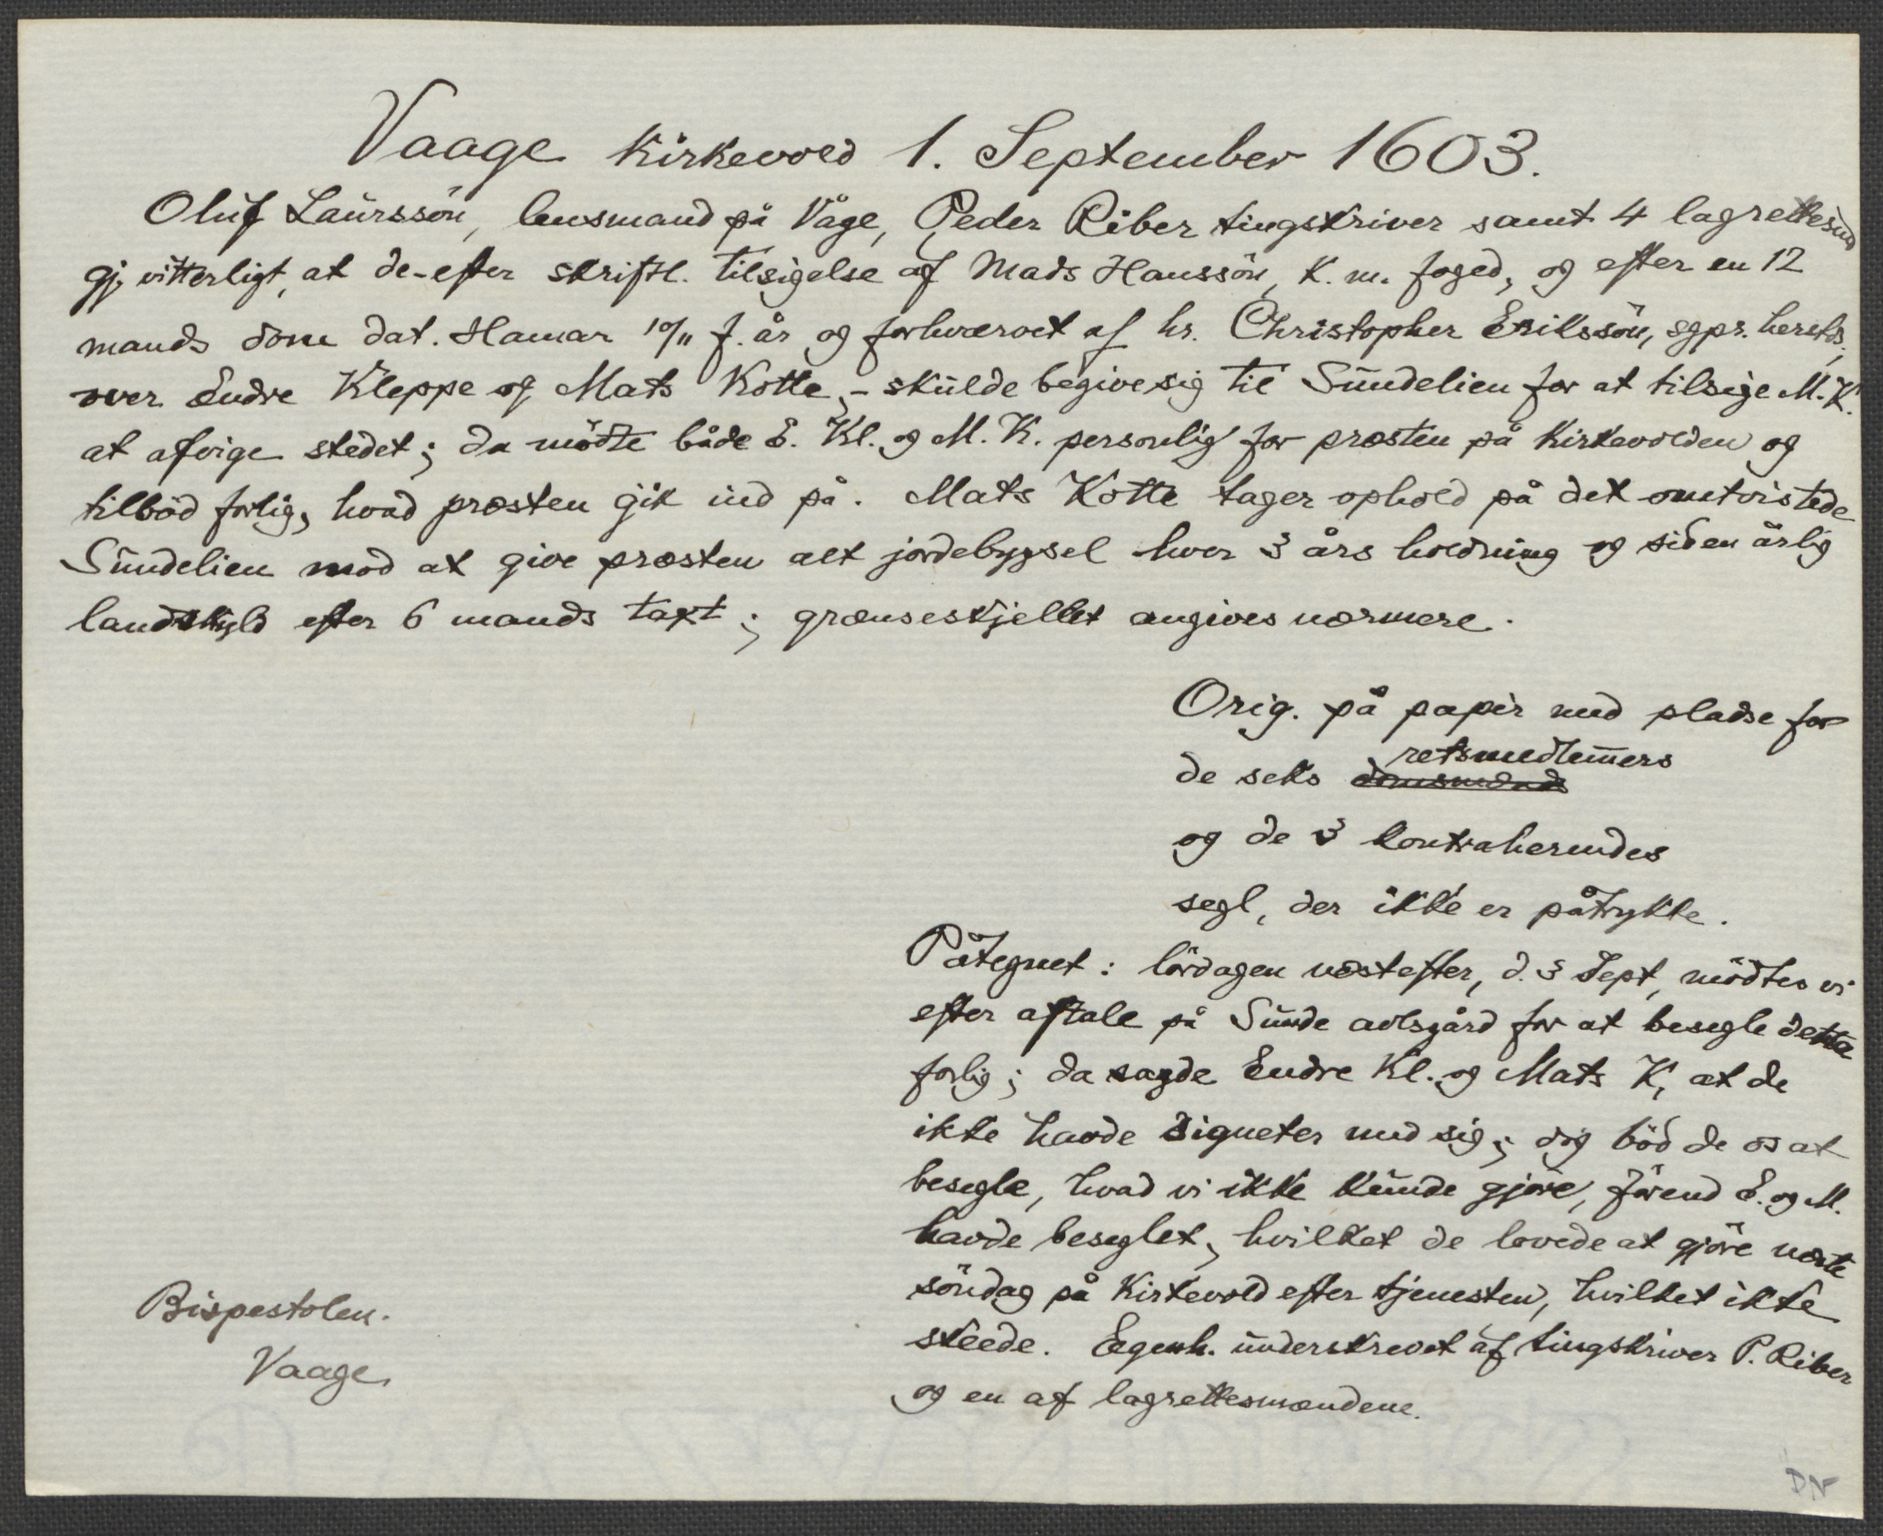 Vaage kirkevold 1. September 1603.
Oluf Laurssön, lensmand på Våge, Peder Riber tingskriver samt 4 lagrettesmd
gj. vitterligt, at de - efter skriftl. tilsigelse af Mads Hanssön, K. m. foged, og efter en 12
mands dom dat. Hamar 10/11 f. år og forhværvet af hr. Christopher Erikssön, sgpr. hersts.,
over Endre Kleppe og Mats Kotte, - skulde begive sig til Sundelien for at tilsige M. K.
at afvige stedet; da mödte både E. Kl. og M. K. personlig for præsten på kirkevolden og
tilböd forlig, hvad præsten gik ind på. Mats Kotte tager ophold på det omtvistede
Sundelien mod at give præsten alt jordebygsel hver 3 års holdning og siden årlig
landskyld efter 6 mands taxt; grænseskjellet angives nærmere.
Orig. på papir med pladse for
de seks retsmedlemmers
og de 3 kontraherendes
segl, der ikke er påtrykte.
Påtegnet: lördagen næstefter, d. 3 Sept, mödtes vi
efter aftale på Sunde avlsgård for at besegle dette
forlig; da sagde Endre Kl. og Mats K, at de
ikke havde signeter med sig; dog böd de os at
besegle, hvad vi ikke kunde gjöre, förend E. og M.
havde beseglet, hvilket de lovede at gjöre næste
söndag på Kirkevold efter tjenesten, hvilket ikke
skeede. Egenh. underskrevet af tingskriver P. Riber
og en af lagrettesmændene.
Bispestolen.
Vaage
DN